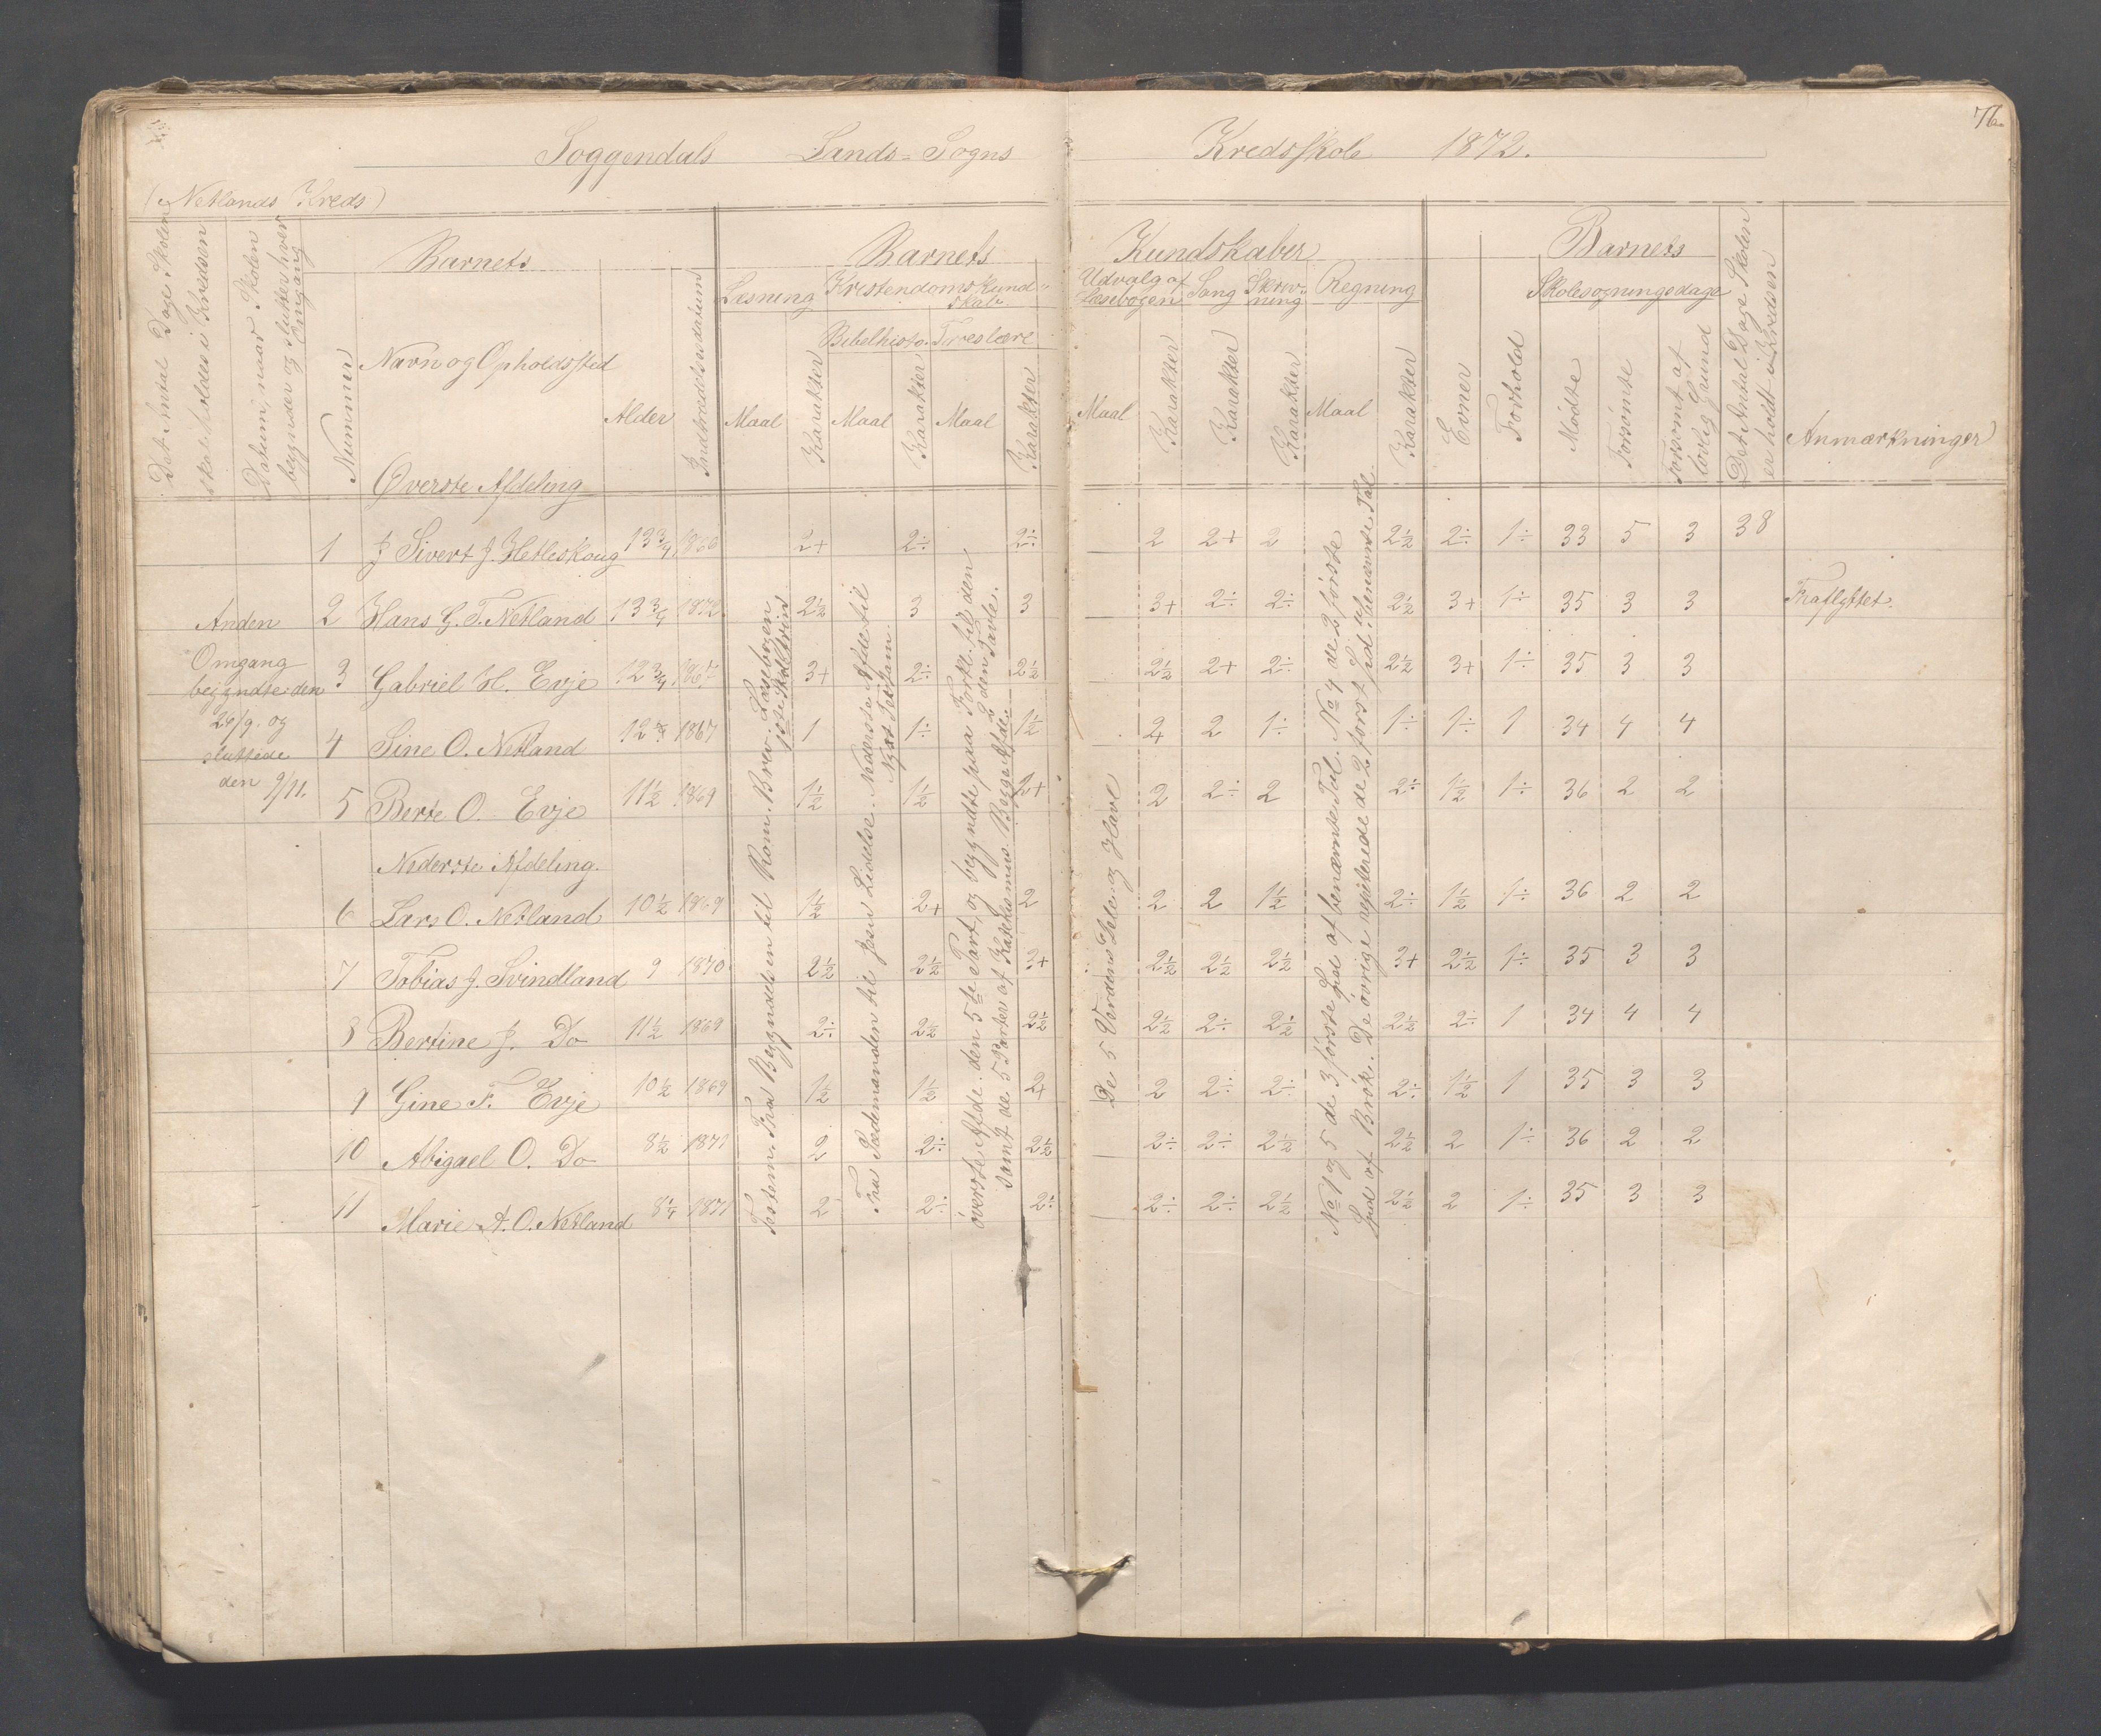 76.
Soggendals Lands-Sogns Kredsskole 1872.
(Netlands Kreds)
Det Antal Dage Skolen
skal holdes i Kredsen
Datum, naar Skolen
begynder og slutter hver
Omgang
Nummer
Barnets
Navn og Opholdssted
Alder
Indtrædelsesdatum
Barnets Kundskaber
Læsning
Kristendomskund-
skab.
Bibelhisto. Troeslære
Maal Karakter Maal Karakter Maal Karakter
Udvalg af
Læsebogen
Sang
Skriv-
ning
Regning
Maal Karakter Karakter Karakter Maal Karakter
Evner
Forhold
Barnets
Skolesøgningsdage
Mødte
Forsømte
Forsømt af
lovlig Grund
Det Antal Dage Skolen
er holdt i Kredsen
Anmærkninger
Øverste Afdeling
1 J Sivert J. Hetleskoug 13 3/4 1866 2+ 2÷ 2÷ 2 2+ 2 2½ 2÷ 1÷ 33 5 3 38
2 Hans G. T. Netland 13 3/4 1872 2½ 3 3 3+ 2÷ 2÷ 2½ 3+ 1÷ 35 3 3 Fraflyttet.
3 Gabriel H. Evje 12 3/4 1867 3+ 2÷ 2½ 2½ 2+ 2÷ 2½ 3+ 1÷ 35 3 3
4 Sine O. Netland 12 1867 1 1÷ 1½ 2 2 1÷ 1÷ 1÷ 1 34 4 4
5 Berte O. Evje 11½ 1869 1½ 1½ 2+ 2 2÷ 2 2÷ 1½ 1÷ 36 2 2
Nederste Afdeling.
6 Lars O. Netland 10½ 1869 1½ 2+ 2 2 2 1½ 2÷ 1½ 1÷ 36 2 2
7 Tobias J. Svindland 9 1870 2½ 2½ 3+ 2½ 2½ 2½ 3+ 2½ 1÷ 35 3 3
8 Bertine J. Do 11½ 1869 2÷ 2½ 2½ 2½ 2÷ 2½ 2½ 2÷ 1 34 4 4
9 Gine F. Evje 10½ 1869 1½ 1½ 2+ 2 2÷ 2÷ 2÷ 1½ 1 35 3 3
10 Abigael O. Do 8½ 1871 2 2÷ 2½ 2÷ 2÷ 2½ 2½ 2 1÷ 36 2 2
11 Marie A. O. Netland 8¼ 1871 2 2÷ 2÷ 2÷ 2÷ 2½ 2½ 2 1÷ 35 3 3
Anden
Omgang
begyndte den
24/9. og
sluttede
den 9/11.
Testem. Fra Begyndelsen til Rom. Brev. Læsebogen
Fra Sædemanden til Jesu Lidelse. Nederste Afde til
Nyt Testam.
øverste Afde. den 5te Part, og begyndte paa Forkl. til den
samt de 5 Parter af Katekismus. Begge Afde. 2den Tavle.
De 5 Verdens Dele og Have
No 1 og 5 de 3 første Spd af benævnte Tal. No 4 de 2 første
Spd af Brøk. De øvrige repeterede de 2 først Spd ubenævnte Tal.